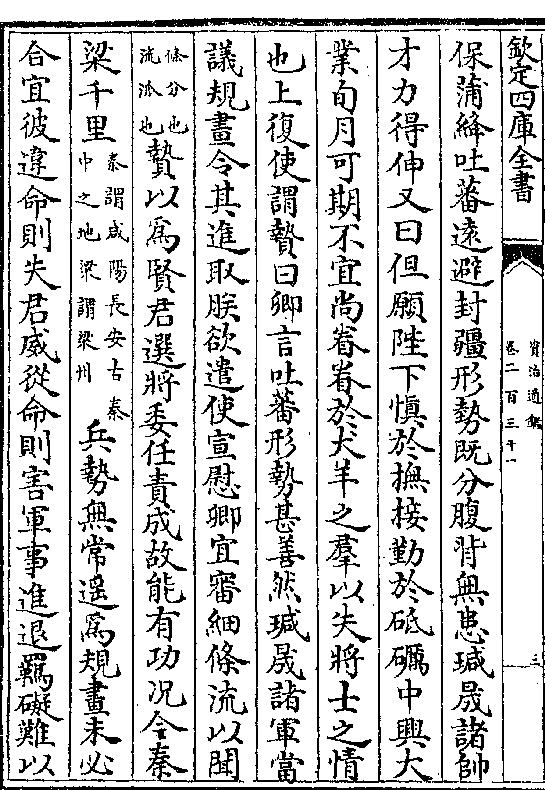 欽定四庫全書
資治通鑑
卷二百三十一
三
保蒲絳吐蕃遠避封疆形勢既分腹背無患瑊晟諸帥
才力得伸又曰但願陛下慎於撫接勤於砥礪中興大
業旬月可期不宜尚眷眷於犬羊之羣以失將士之情
也上復使謂贄曰卿言吐蕃形勢甚善然瑊晟諸軍當
議規畫令其進取朕欲遣使宣慰卿宜審細條流以聞
條分也
流派也
贄以爲賢君選將委任責成故能有功况今秦
梁千里
秦謂咸陽長安古秦
中之地梁謂梁州
兵勢無常遥爲規畫未必
合宜彼違命則失君威從命則害軍事進退羈礙難以